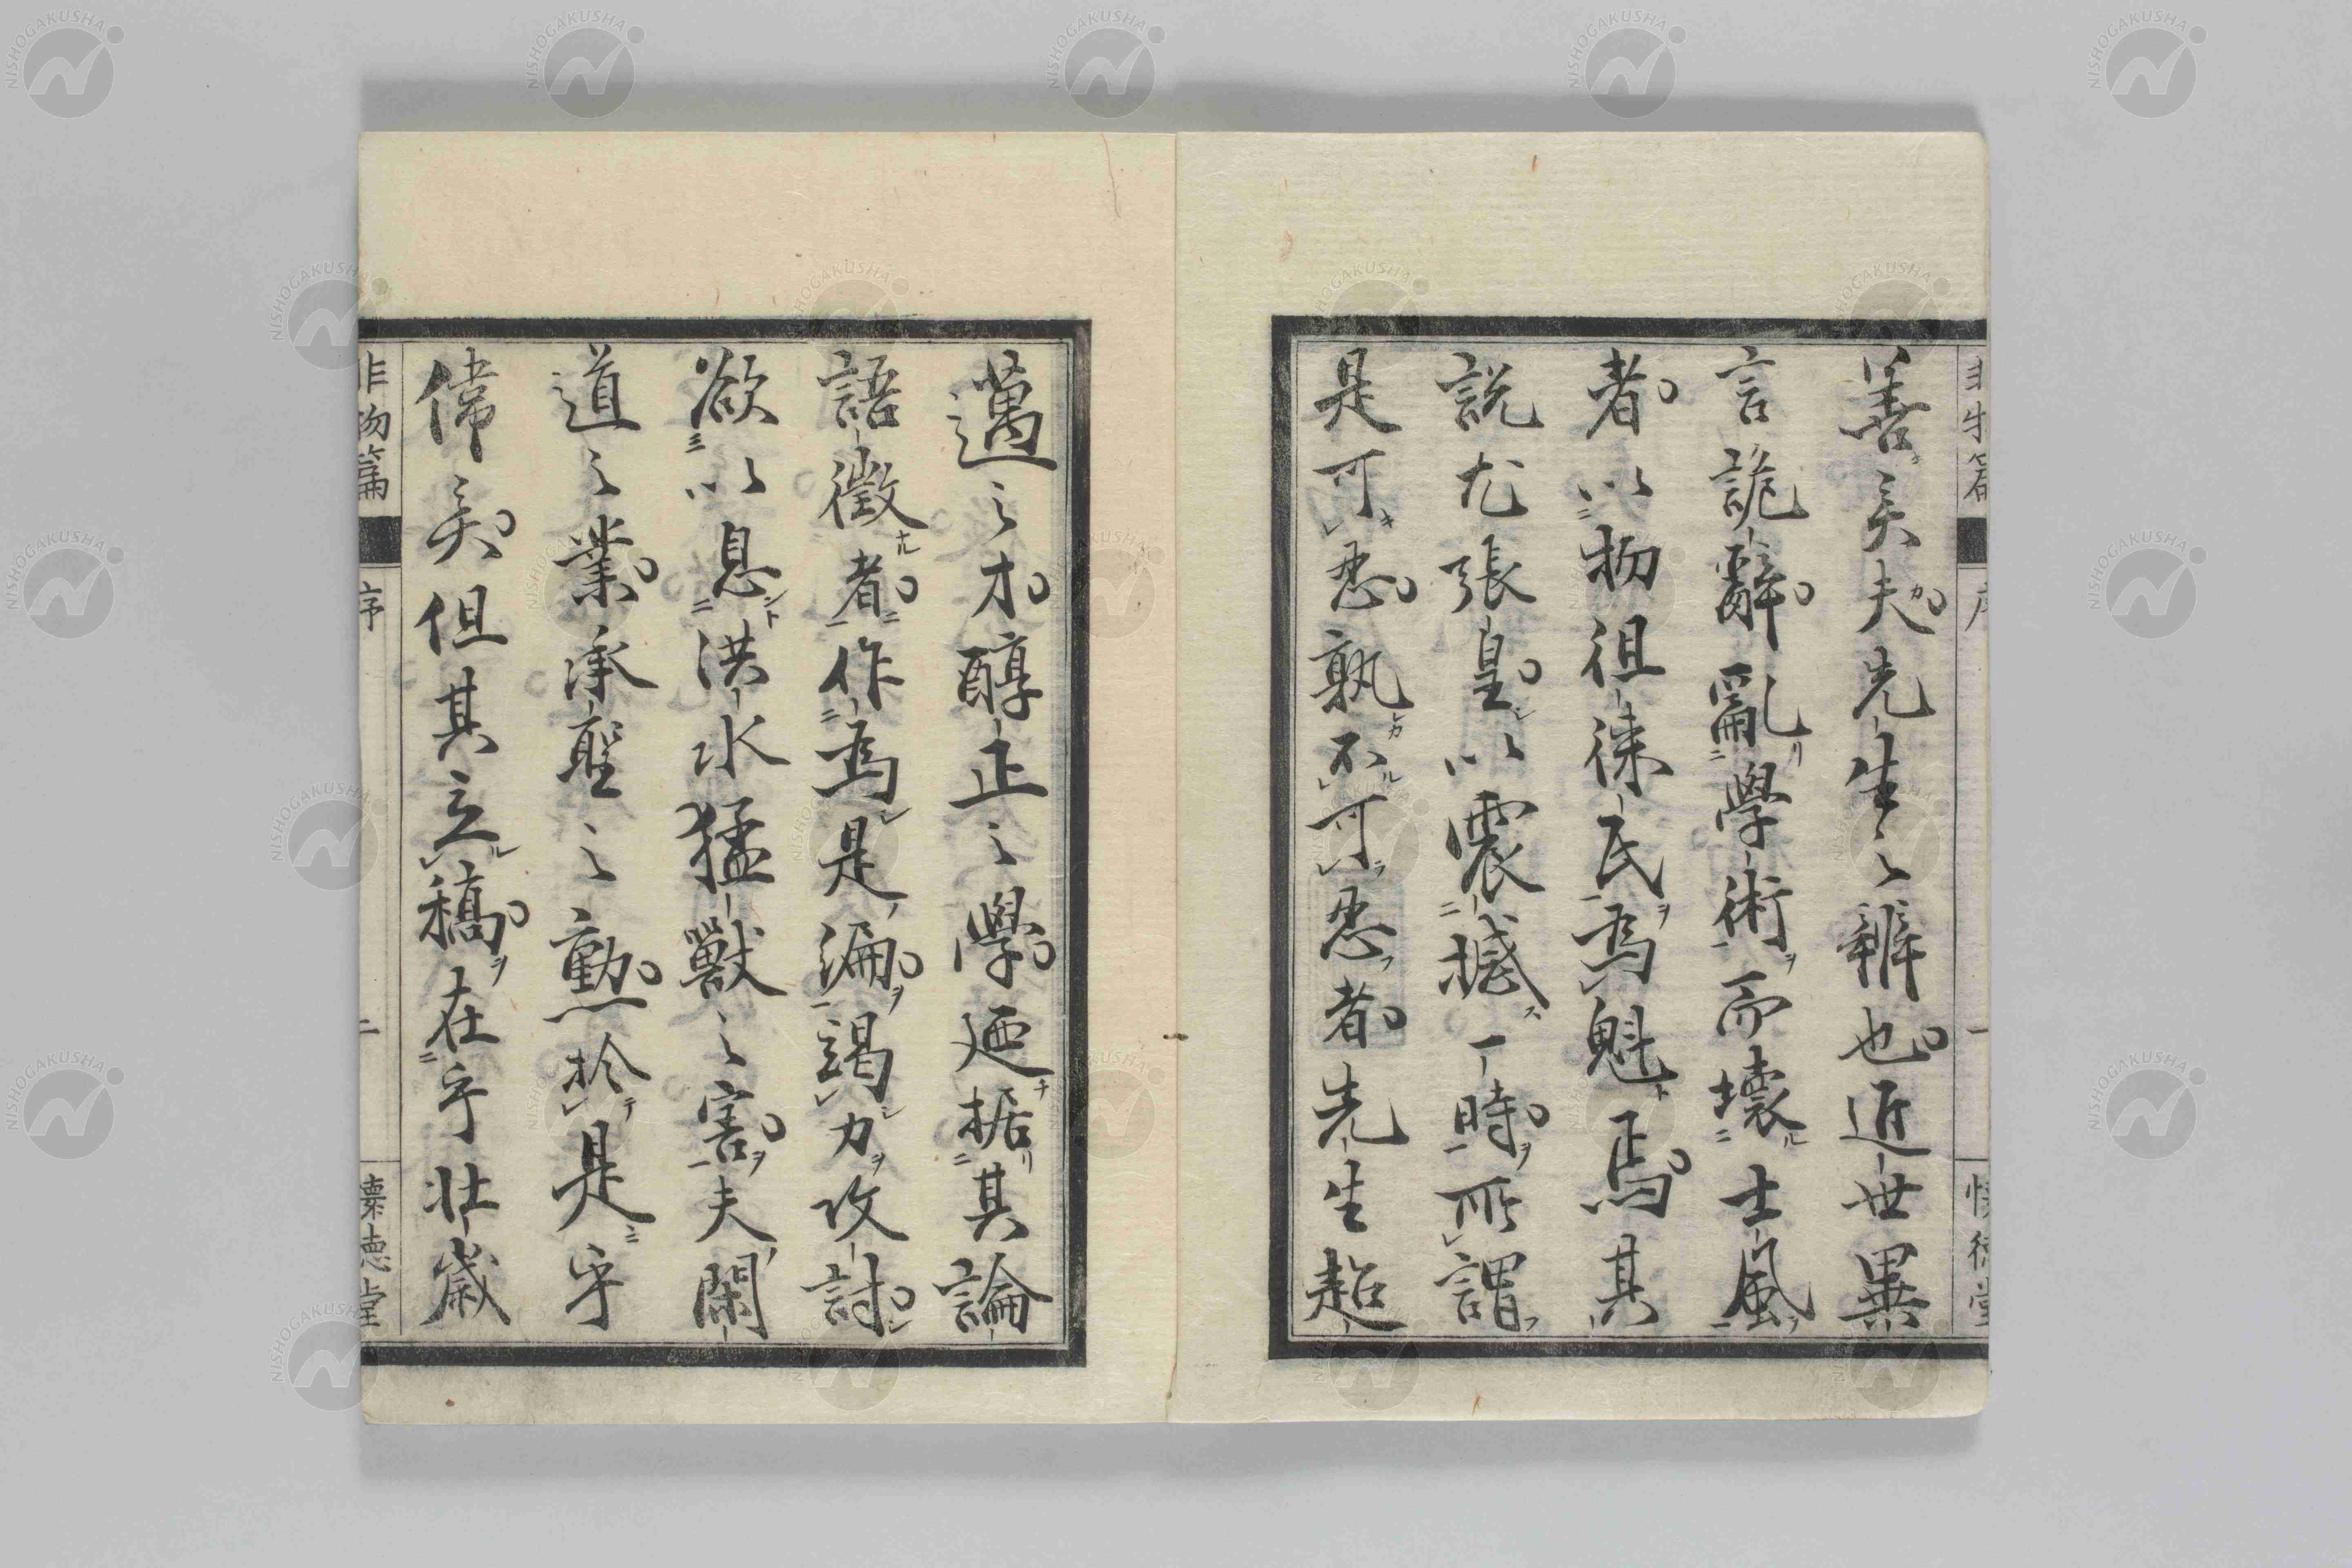 善矣夫先生之辨也近世異
言詭辭亂學術而壞士風
者以物徂徠氏為魁焉其
說尤張皇以震撼一時所謂
是可忍孰不可忍者先生超
邁之才醇正之學迺据其論
語徵者作為是編竭力攻討
欲以息洪水猛獸之害夫閑
道之業承聖之勳於是乎
偉矣但其立稿在乎壯歲
非物篇 序 二 懷德堂